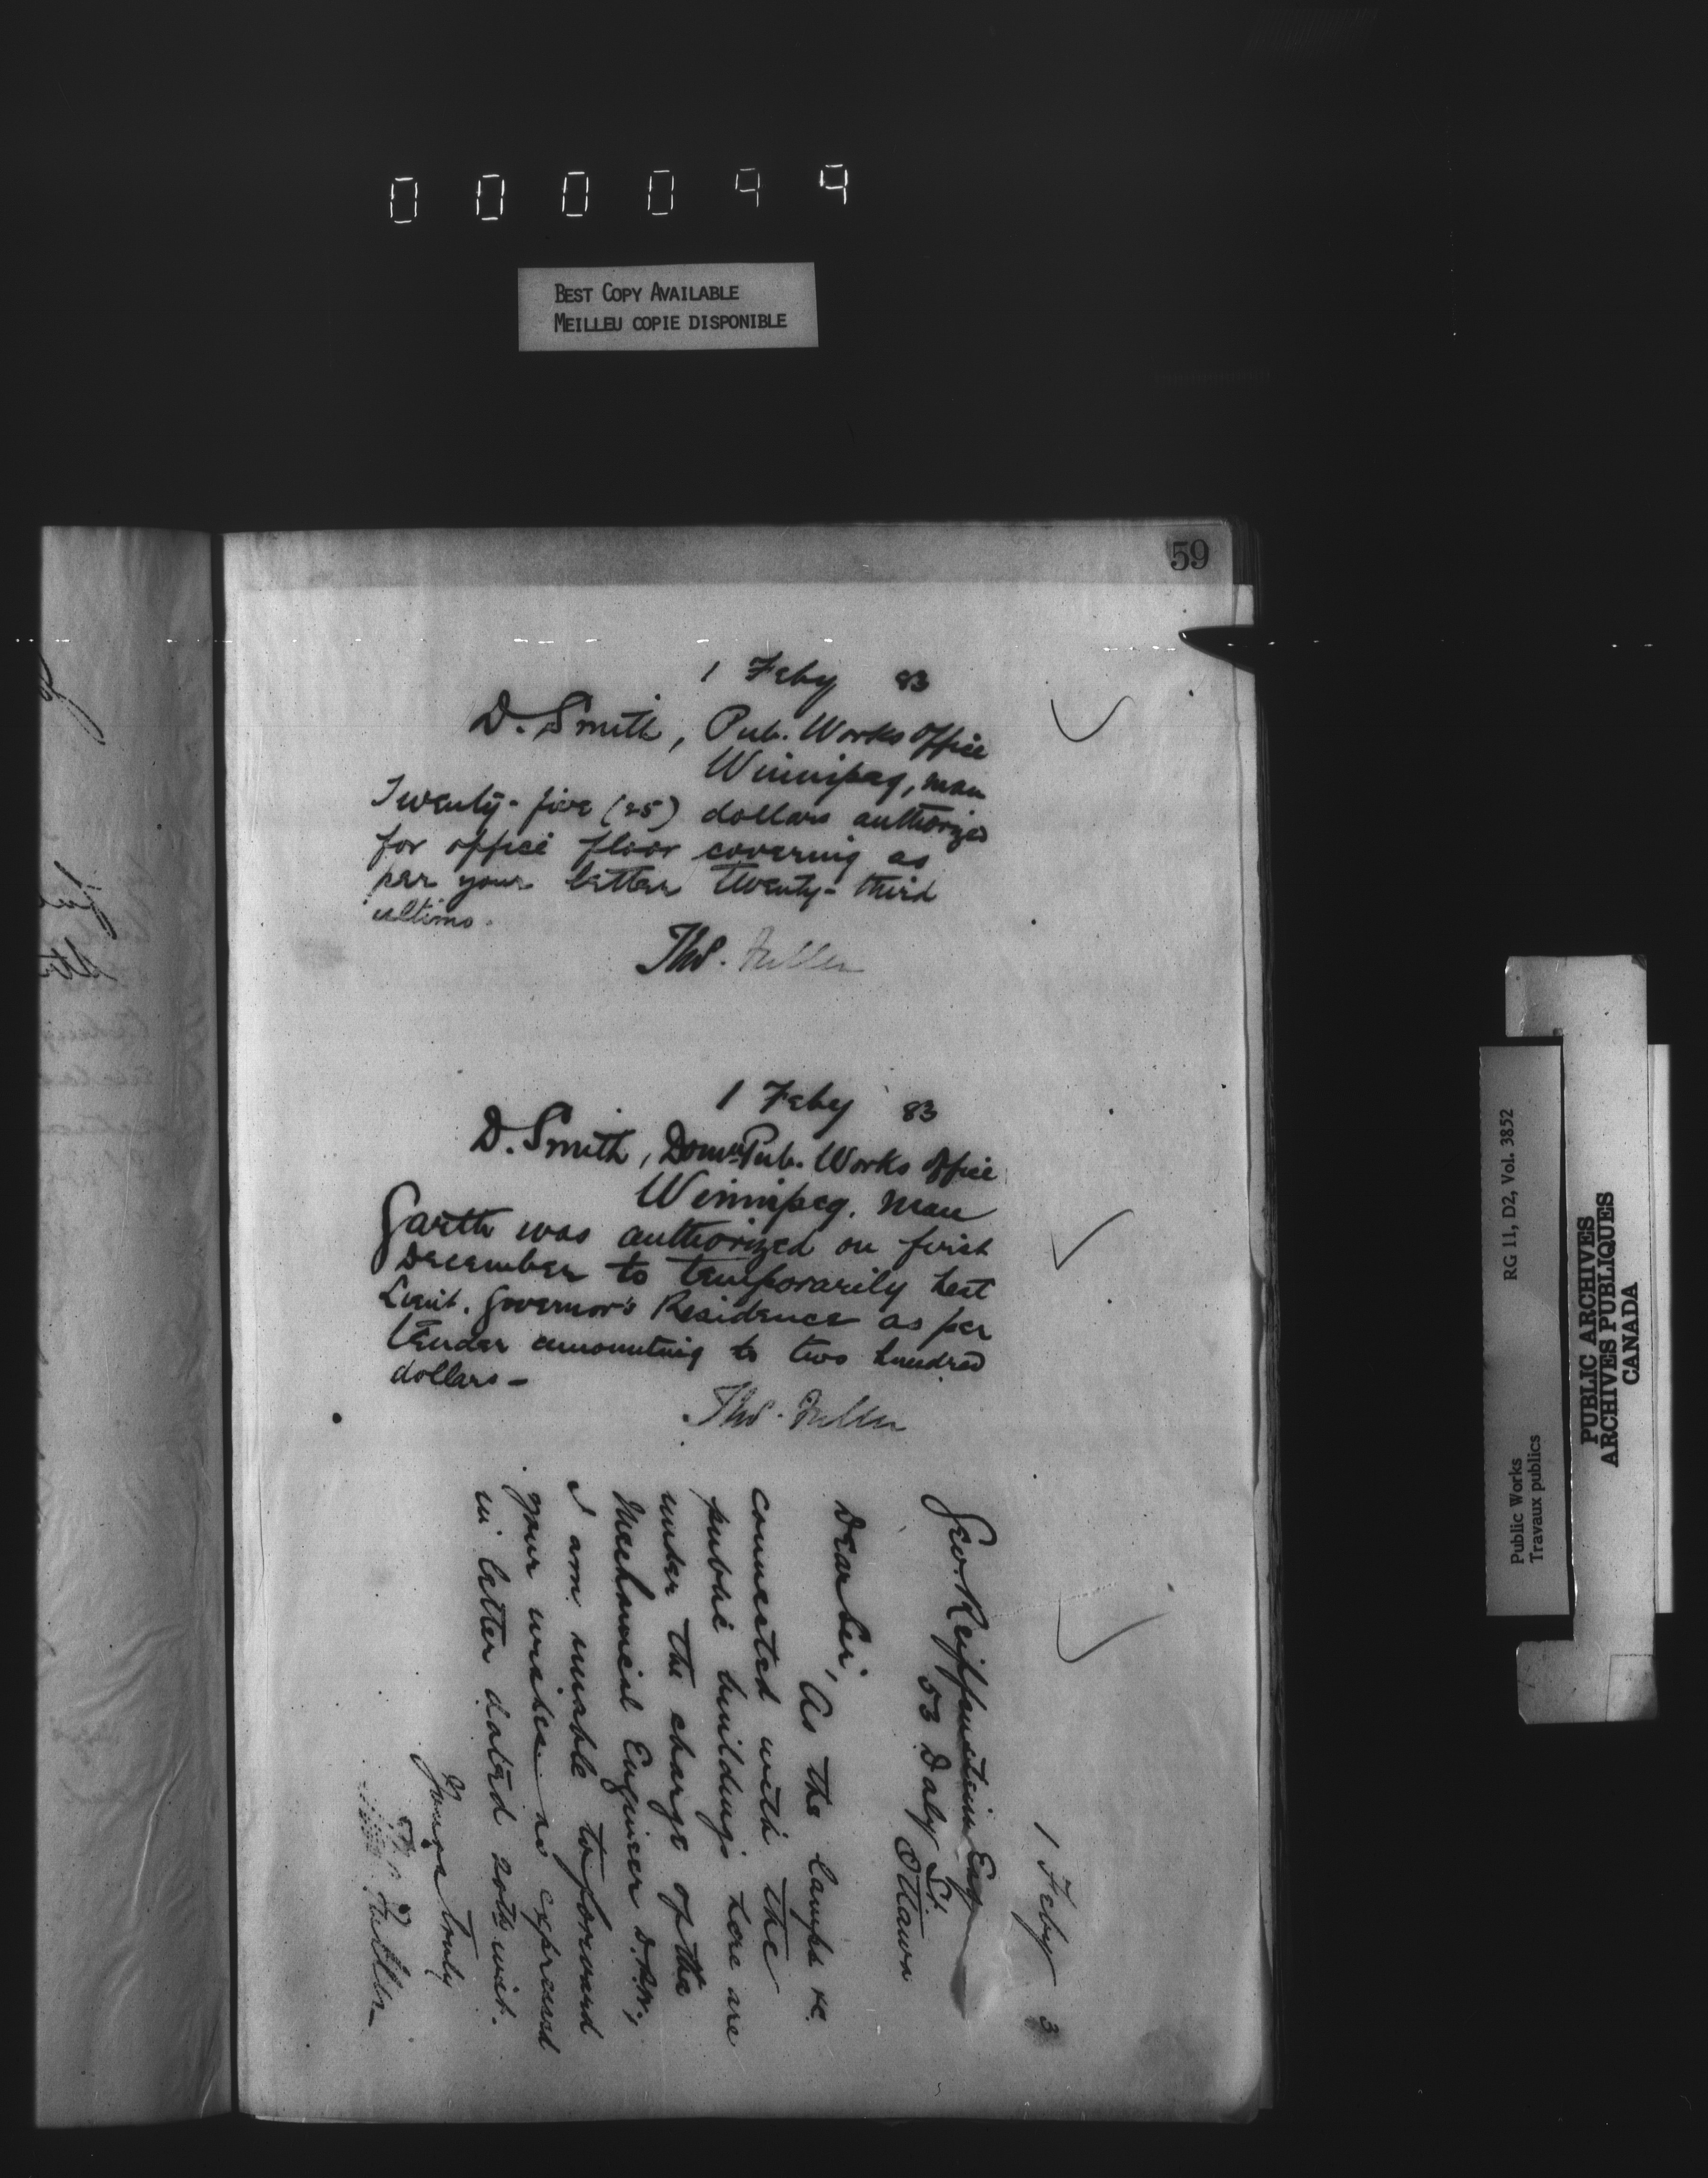 000044
BEST COPY AVAILABLE
MEILLEU COPIE DISPONIBLE
59
1 Feby 83
D. Smith, Pub. Works Office
Winnipeg, Man
Twenty-five (25) dollars authorized
for office floor covering as
per your letter twenty-third
ultimo.
Thos. Fuller
1 Feby 83
D. Smith, Domn Pub. Works Office
Winnipeg. Man
Garth was authorized on first
December to temporarily heat
Lieut. Governor's Residence as per
tender amounting to two hundred
dollars—
Thos. Fuller
1 Feby 3
Geo. Esq
53 Daly St
Ottawa
Dear Sir,
As the lamps &c.
connected with the
public buildings here are
under the charge of the
Mechanical Engineer D.P.W.,
I am unable to forward
your wishes as expressed
in letter dated 20th inst.
Yours truly
Fuller
RG 11, D2, Vol. 3852
Public Works
Travaux publics
PUBLIC ARCHIVES
ARCHIVES PUBLIQUES
CANADA